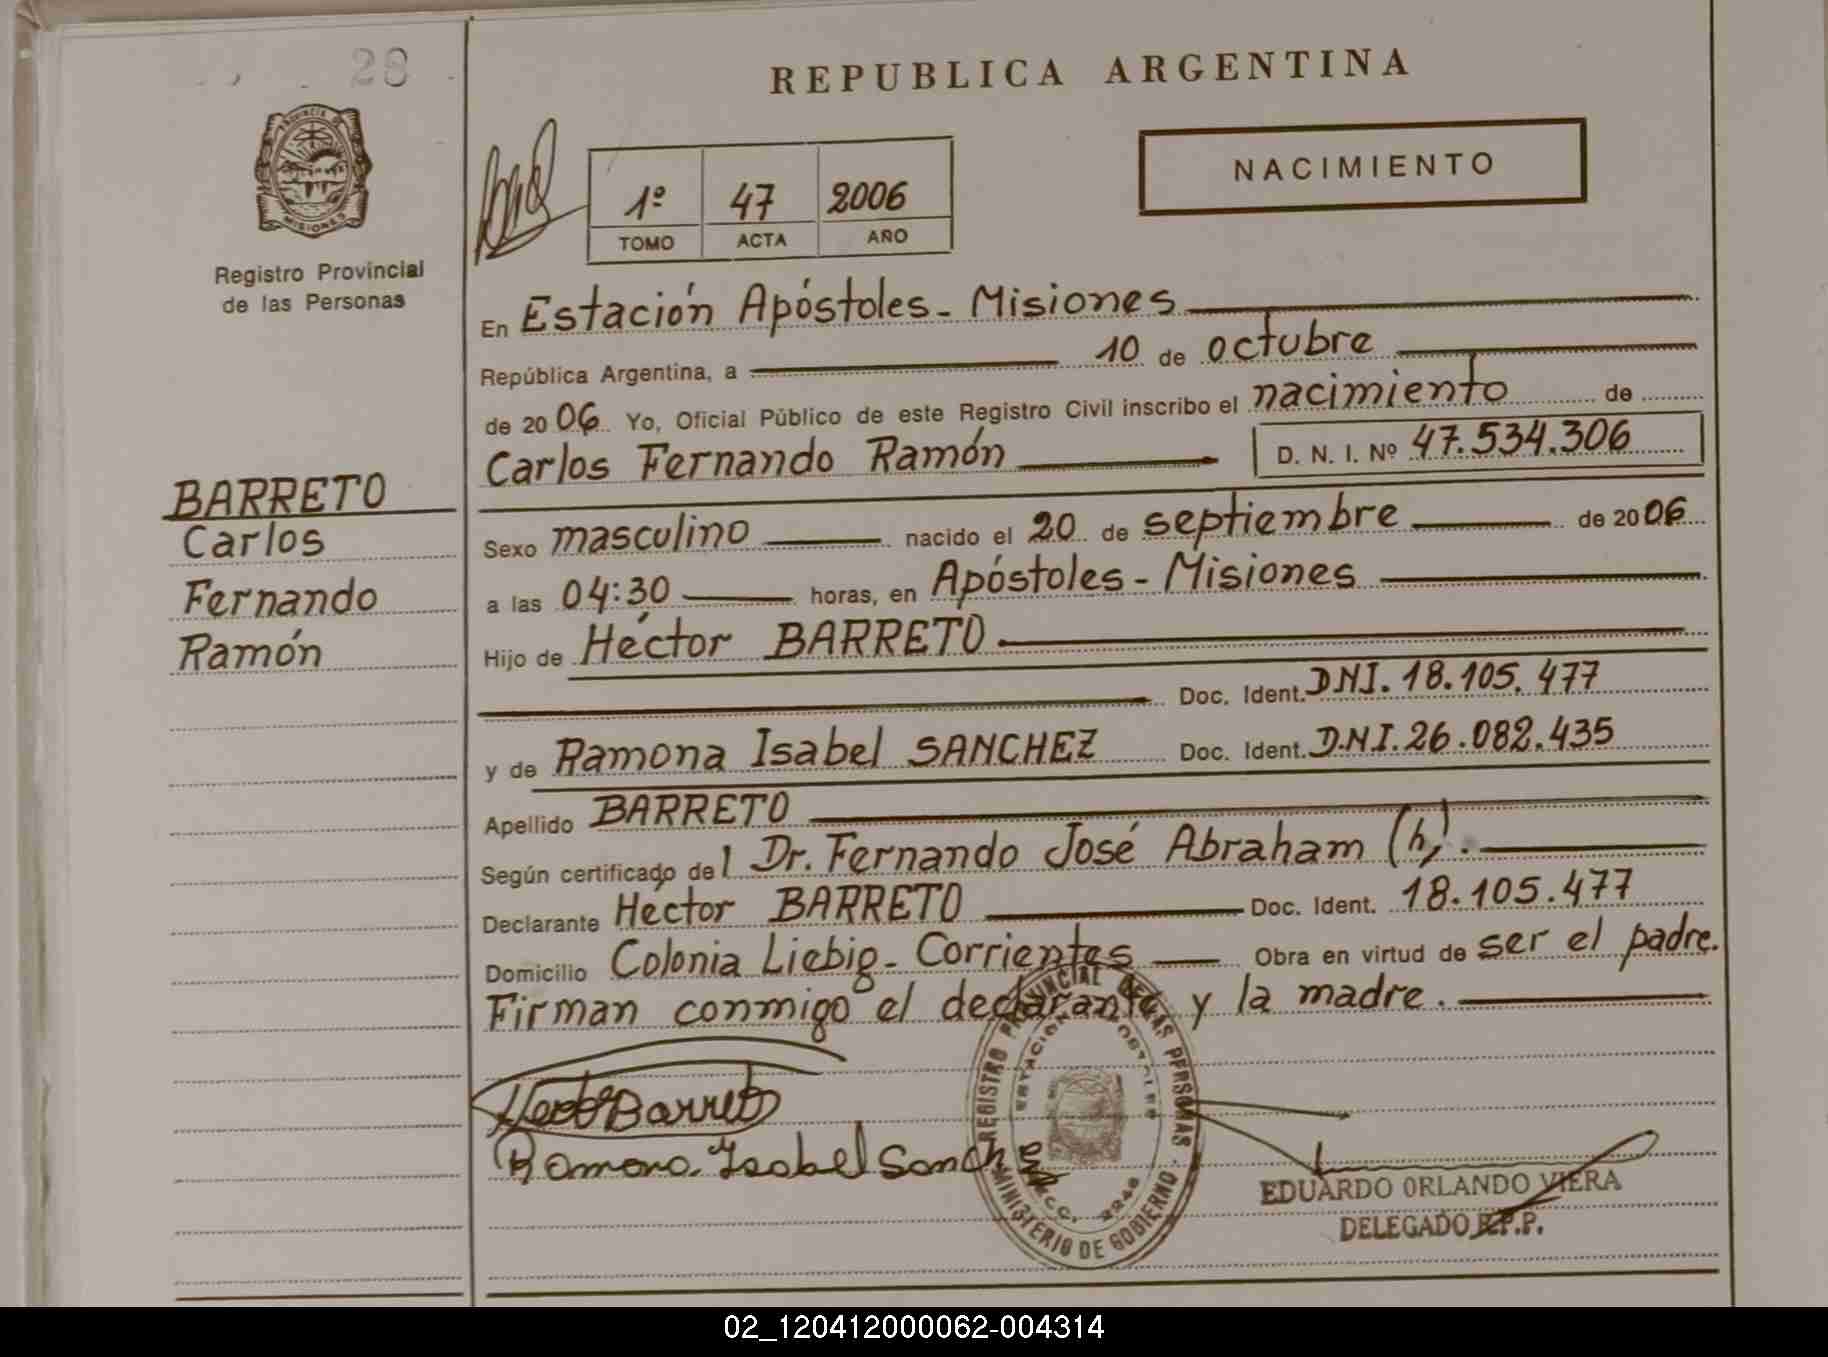 28
REPUBLICA ARGENTINA
NACIMIENTO
PROVINCIA DE
MISIONES
1º 47 2006
TOMO ACTA AÑO
Registro Provincial
de las Personas
En Estación Apóstoles - Misiones
República Argentina, a 10 de octubre
de 2006 Yo, Oficial Público de este Registro Civil inscribo el nacimiento de
Carlos Fernando Ramón D. N. I. Nº 47.534.306
BARRETO
Carlos
Fernando
Ramón
Sexo masculino nacido el 20 de septiembre de 2006
a las 04:30 horas, en Apóstoles - Misiones
Hijo de Héctor BARRETO
Doc. Ident. DNI. 18.105.477
y de Ramona Isabel SANCHEZ Doc. Ident. D.N.I. 26.082.435
Apellido BARRETO
Según certificado del Dr. Fernando José Abraham (h).
Declarante Héctor BARRETO Doc. Ident. 18.105.477
Domicilio Colonia Liebig - Corrientes Obra en virtud de ser el padre.
Firman conmigo el declarante y la madre.
Hector Barreto
Ramona Isabel Sanchez
REGISTRO PROVINCIAL DE LAS PERSONAS
MINISTERIO DE GOBIERNO
EDUARDO ORLANDO VIERA
DELEGADO R.P.P.
02_120412000062-004314